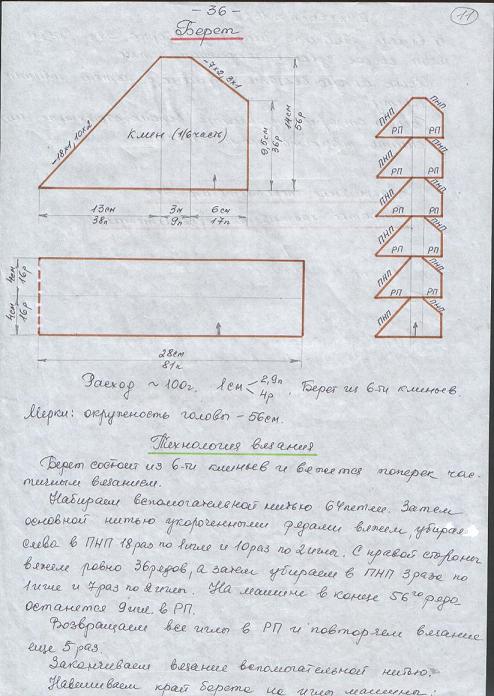 - 36 -
11
Берет
-7х2, 3х1
-18х1, 10х2
Клин (1/6 часть)
9,5см
36р
14см
56р
13см
38п
3см
9п
6см
17п
ПНП
ПНП
РП
РП
ПНП
ПНП
РП
РП
ПНП
ПНП
РП
РП
ПНП
ПНП
РП
РП
ПНП
ПНП
РП
РП
ПНП
ПНП
4см
16р
4см
16р
28см
81п
Расход ~ 100г. 1см 2,9п 4р . Берет из 6-ти клиньев.
Мерки: окружность головы - 56см.
Технология вязания
Берет состоит из 6-ти клиньев и вяжется поперек час-
тичным вязанием.
Набираем вспомогательной нитью 64 петли. Затем
основной нитью укороченными рядами вяжем, убирая
слева в ПНП 18 раз по 1 игле и 10 раз по 2 иглы. С правой стороны
вяжем ровно 36 рядов, а затем убираем в ПНП 3 раза по
1 игле и 7 раз по 2 иглы. На машине в конце 56го ряда
останется 9 игл в РП.
Возвращаем все иглы в РП и повторяем вязание
еще 5 раз.
Заканчиваем вязание вспомогательной нитью.
Навешиваем край берета на иглы машины